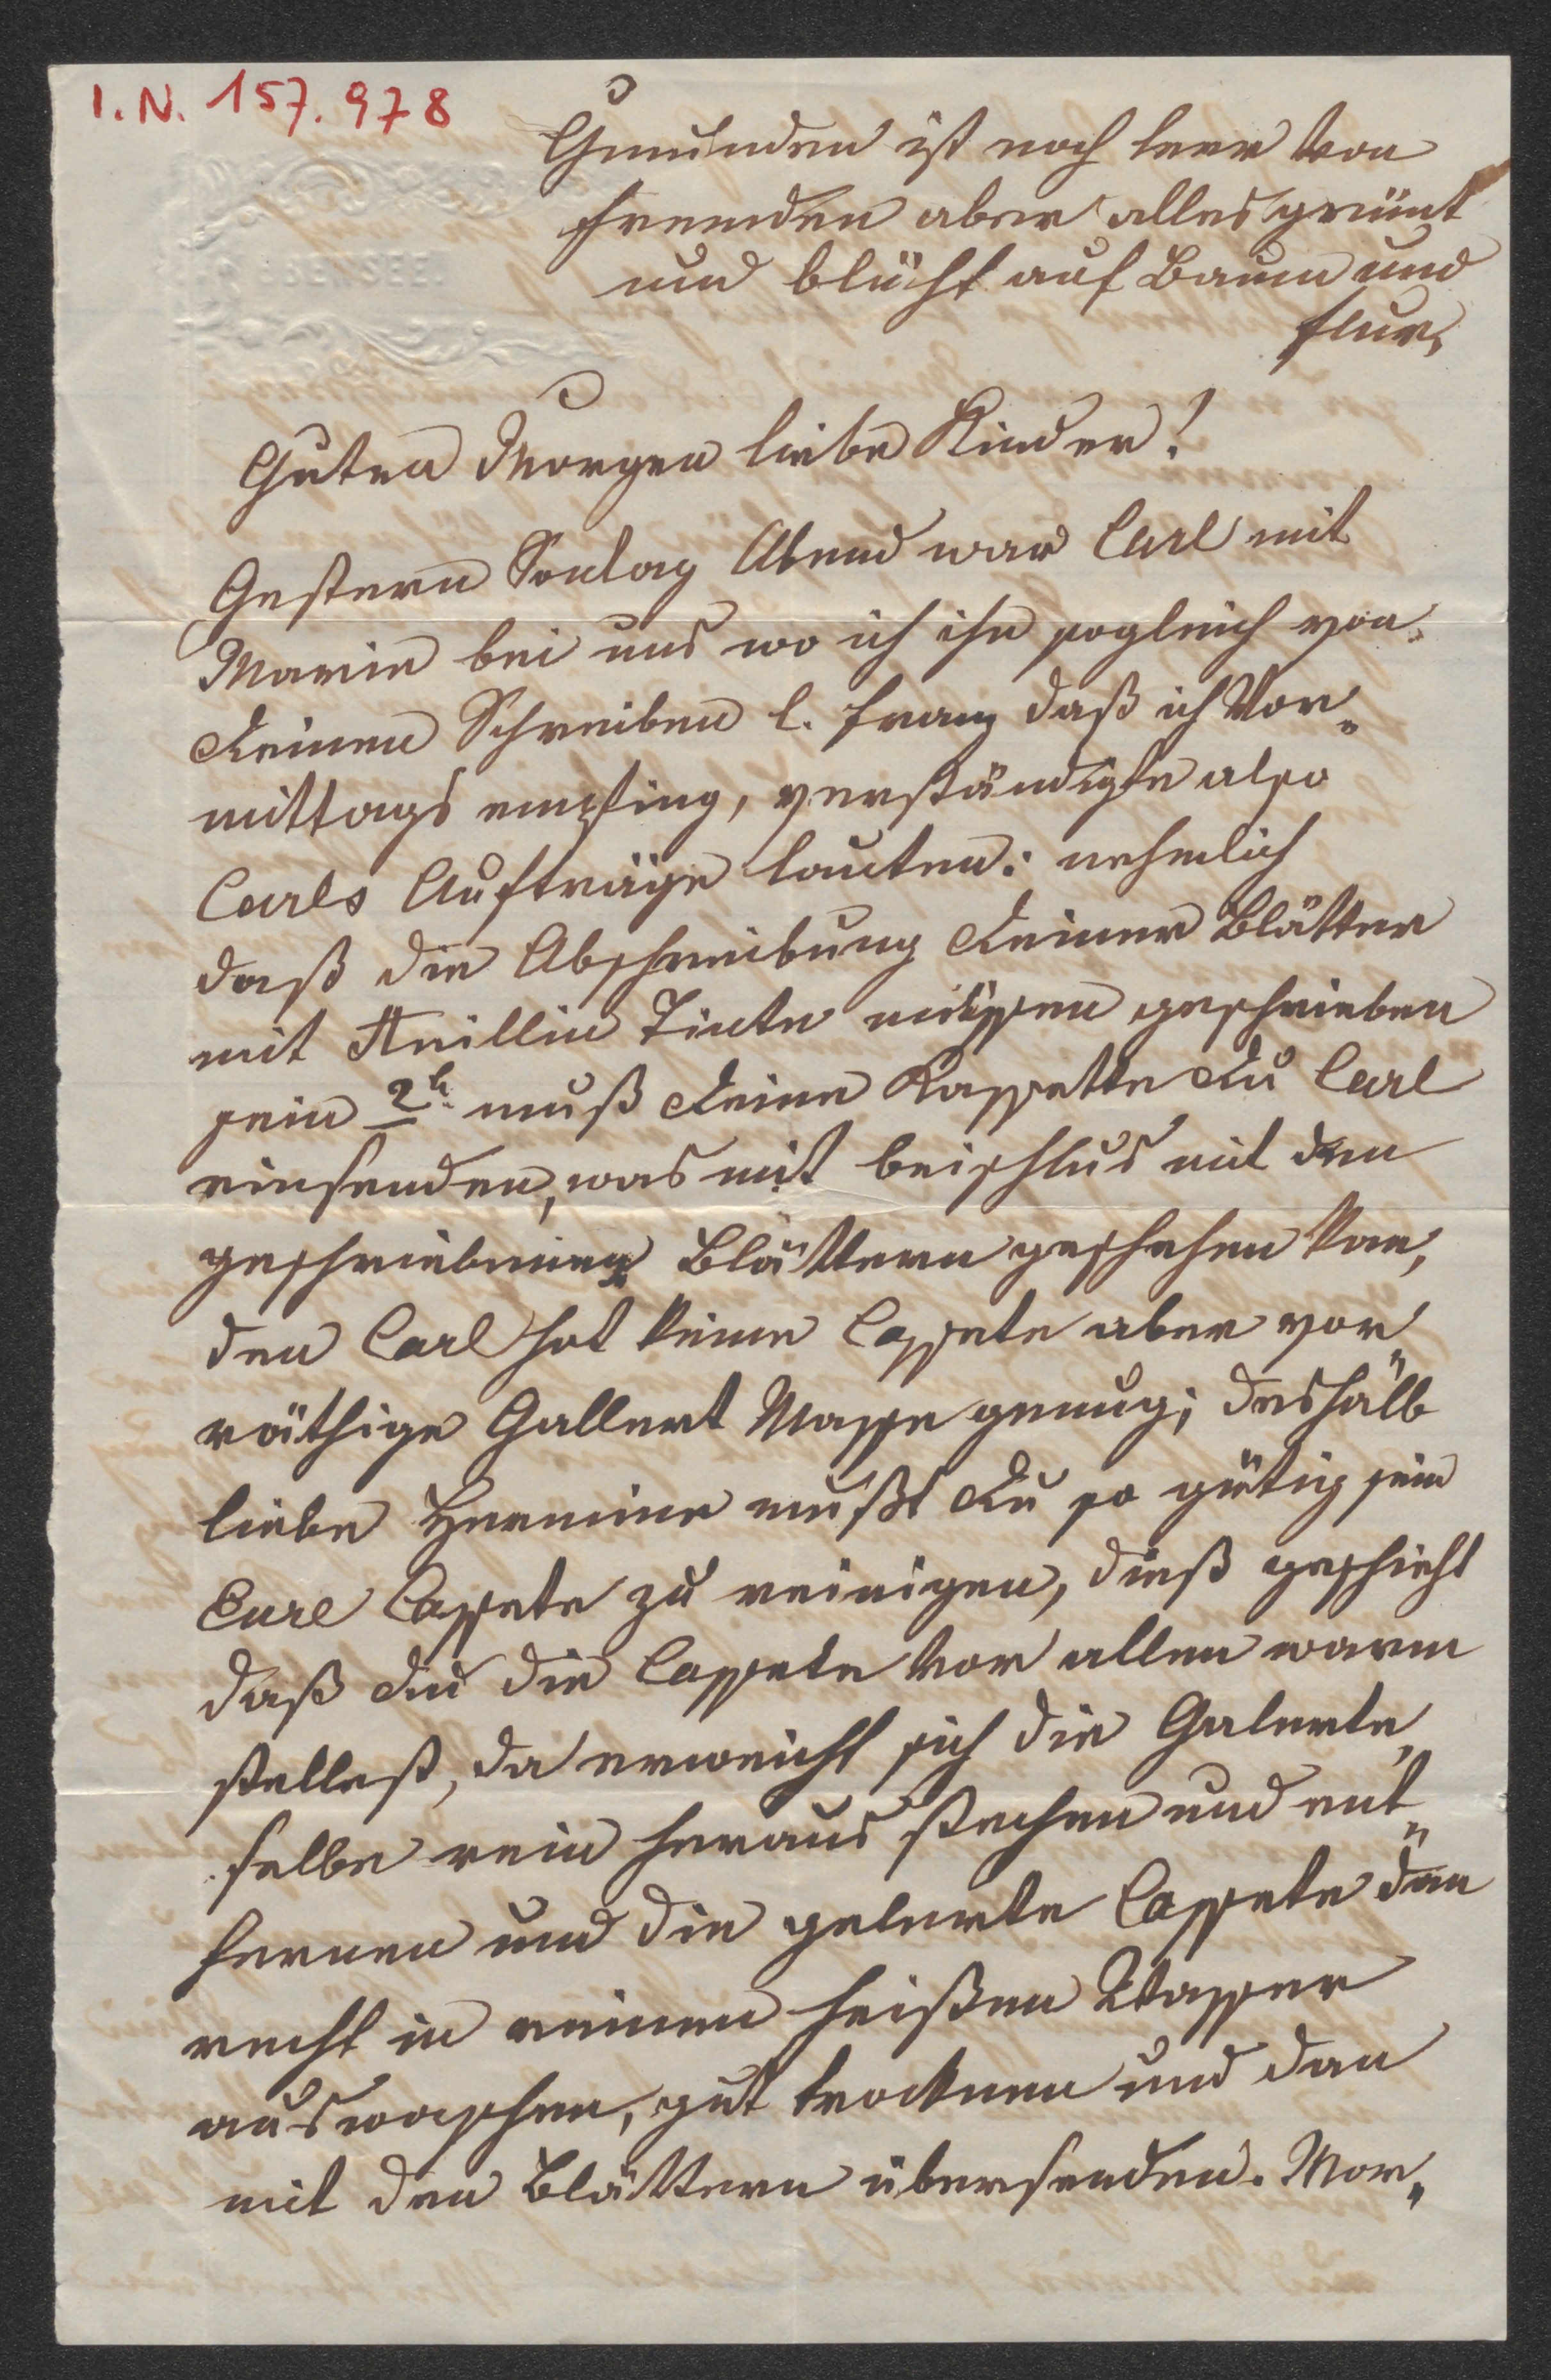 I.N. 157.978
Gmunden ist noch leer von
Fremden aber alles grünt
und blüht auf Baum und
Flur,
Guten Morgen liebe Kinder!
Gestern Sontag Abend war Carl mit
Marie bei uns wo ich ihn sogleich von
Deinen Schreiben l. Franz daß ich Vor„
mittags empfing, verständigte also
Carls Aufträge lauten: nehmlich
daß die Abschreibung Deiner Blätter
mit Anillin Tinte müssen geschrieben
sein 2t. muß Deine Kassette Du Carl
einsenden, was mit beischlus mit den
geschriebenen Blättern geschehen kan,
den Carl hat keine Cassete aber vor„
räthige Gallert Masse genug; deshalb
liebe Hermine mußt Du so gütig sein
Eure Cassete zu reinigen, dieß geschieht
daß Du die Cassete vor allen warm
stellest, da erweicht sich die Galerte,
selbe rein heraus stechen und ent„
fernen und die geleerte Cassete dan
recht in reinen heißen Wasser
auswaschen, gut trocknen und dan
mit den Blättern übersenden. Mor„